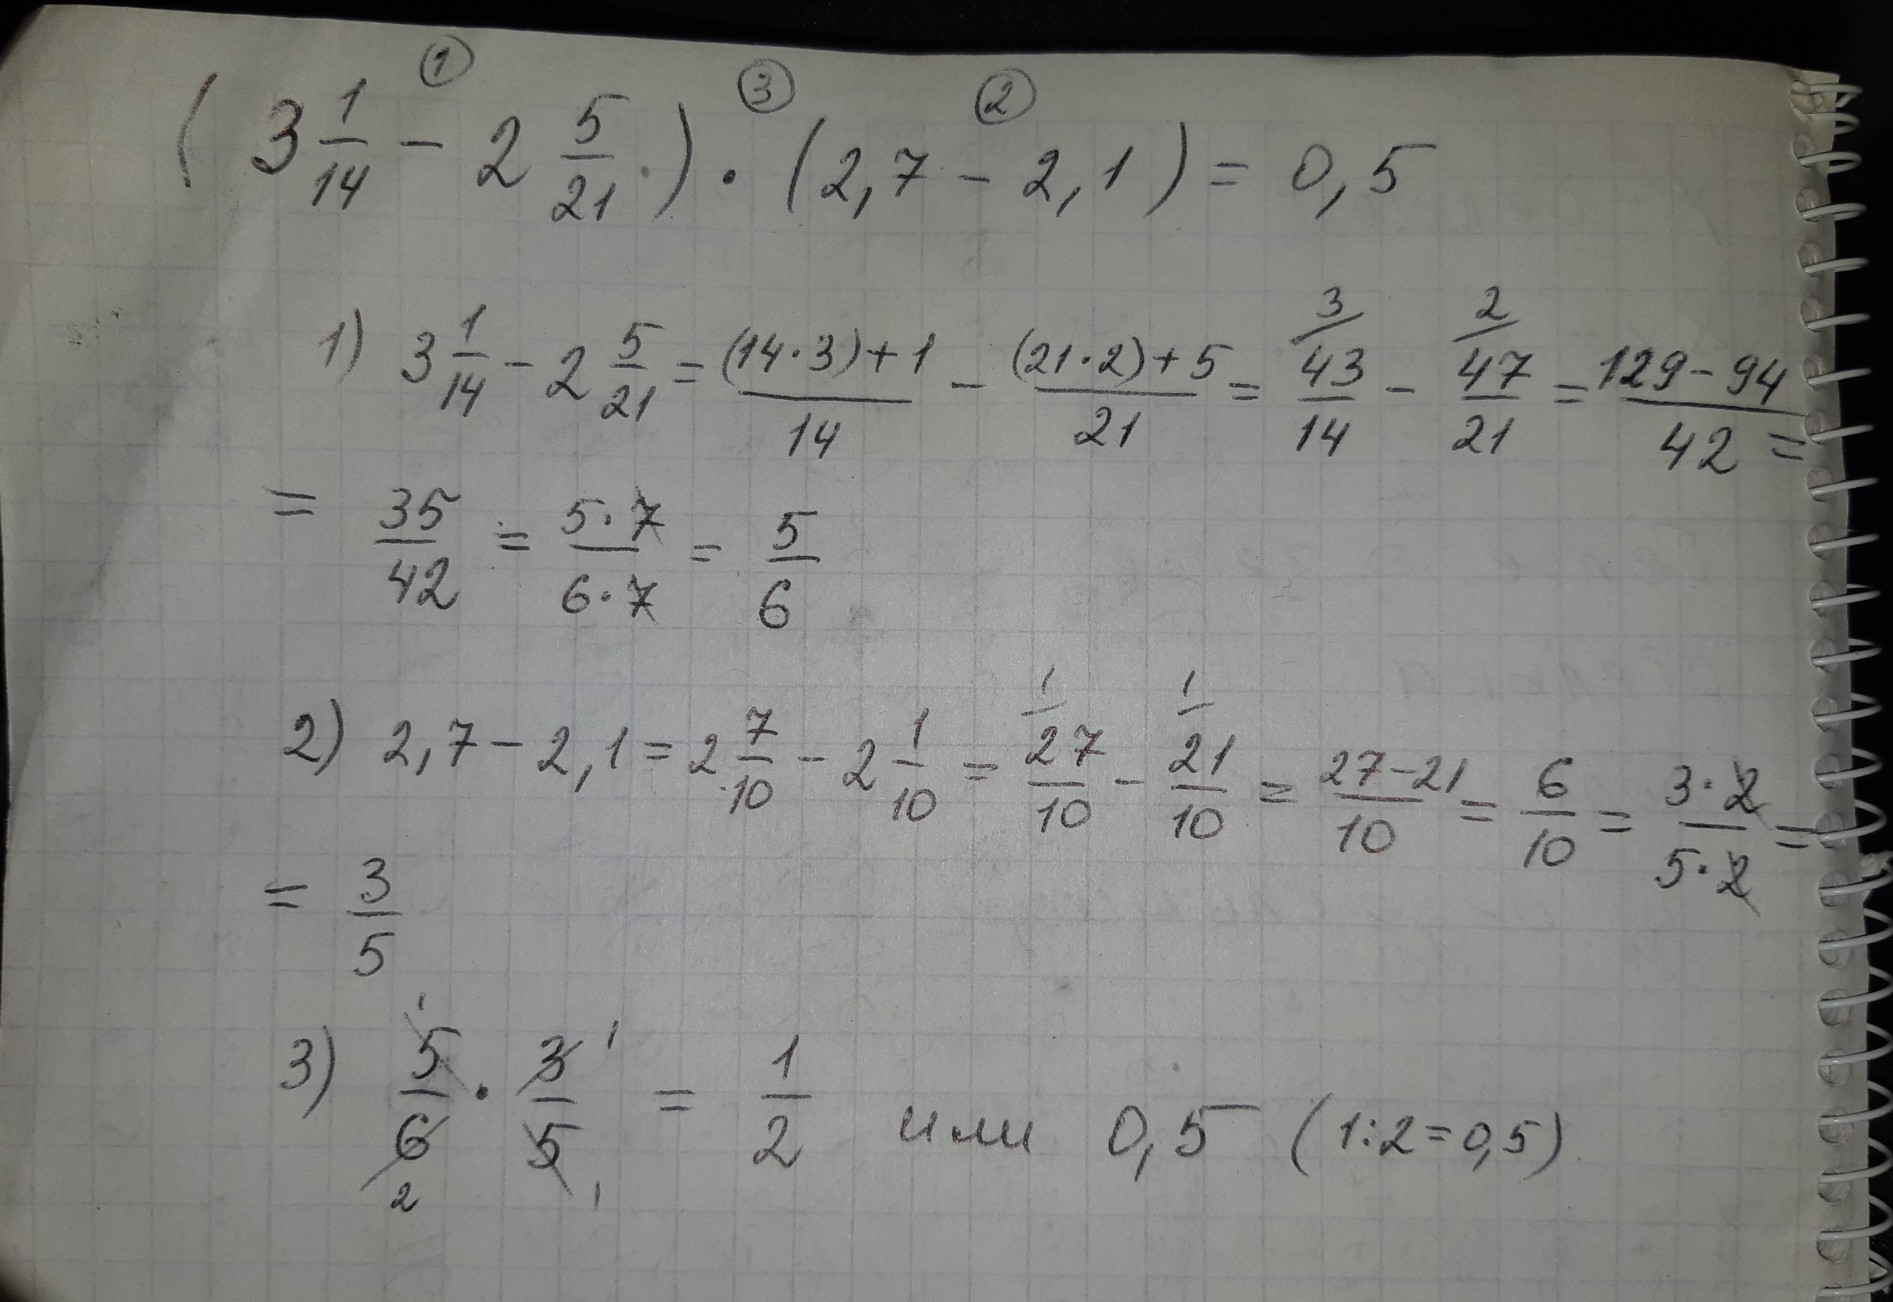 ① ③ ②
(3 1/14 - 2 5/21) · (2,7 - 2,1) = 0,5
1) 3 1/14 - 2 5/21 = (14·3)+1/14 - (21·2)+5/21 = 3/ 43/14 - 2/ 47/21 = 129-94/42 =
= 35/42 = 5·7/6·7 = 5/6
2) 2,7 - 2,1 = 2 7/10 - 2 1/10 = 1/ 27/10 - 1/ 21/10 = 27-21/10 = 6/10 = 3·2/5·2 =
= 3/5
3) 5 1/6 2 · 3 1/5 1 = 1/2 или 0,5 (1:2=0,5)